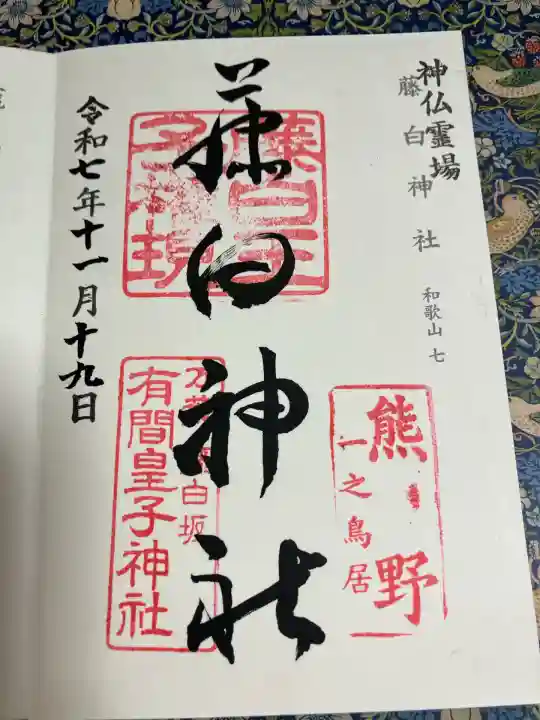 神仏霊場
藤白神社 和歌山 七
熊野
一之鳥居
藤白神社
藤白王
子権現
藤白坂
有間皇子神社
令和七年十一月十九日